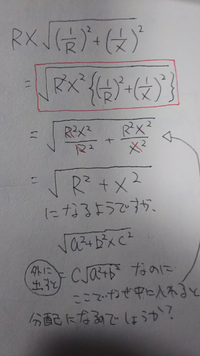 RX√((1/R)² + (1/X)²)
= √(R²X²{(1/R)² + (1/X)²})
= √(R²X²/R² + R²X²/X²)
= √(R² + X²)
になるようですが、
√(a²+b²×c²)
外に出ると = c√(a²+b²) なのに
ここでなぜ中に入れると
分配になるのでしょうか?